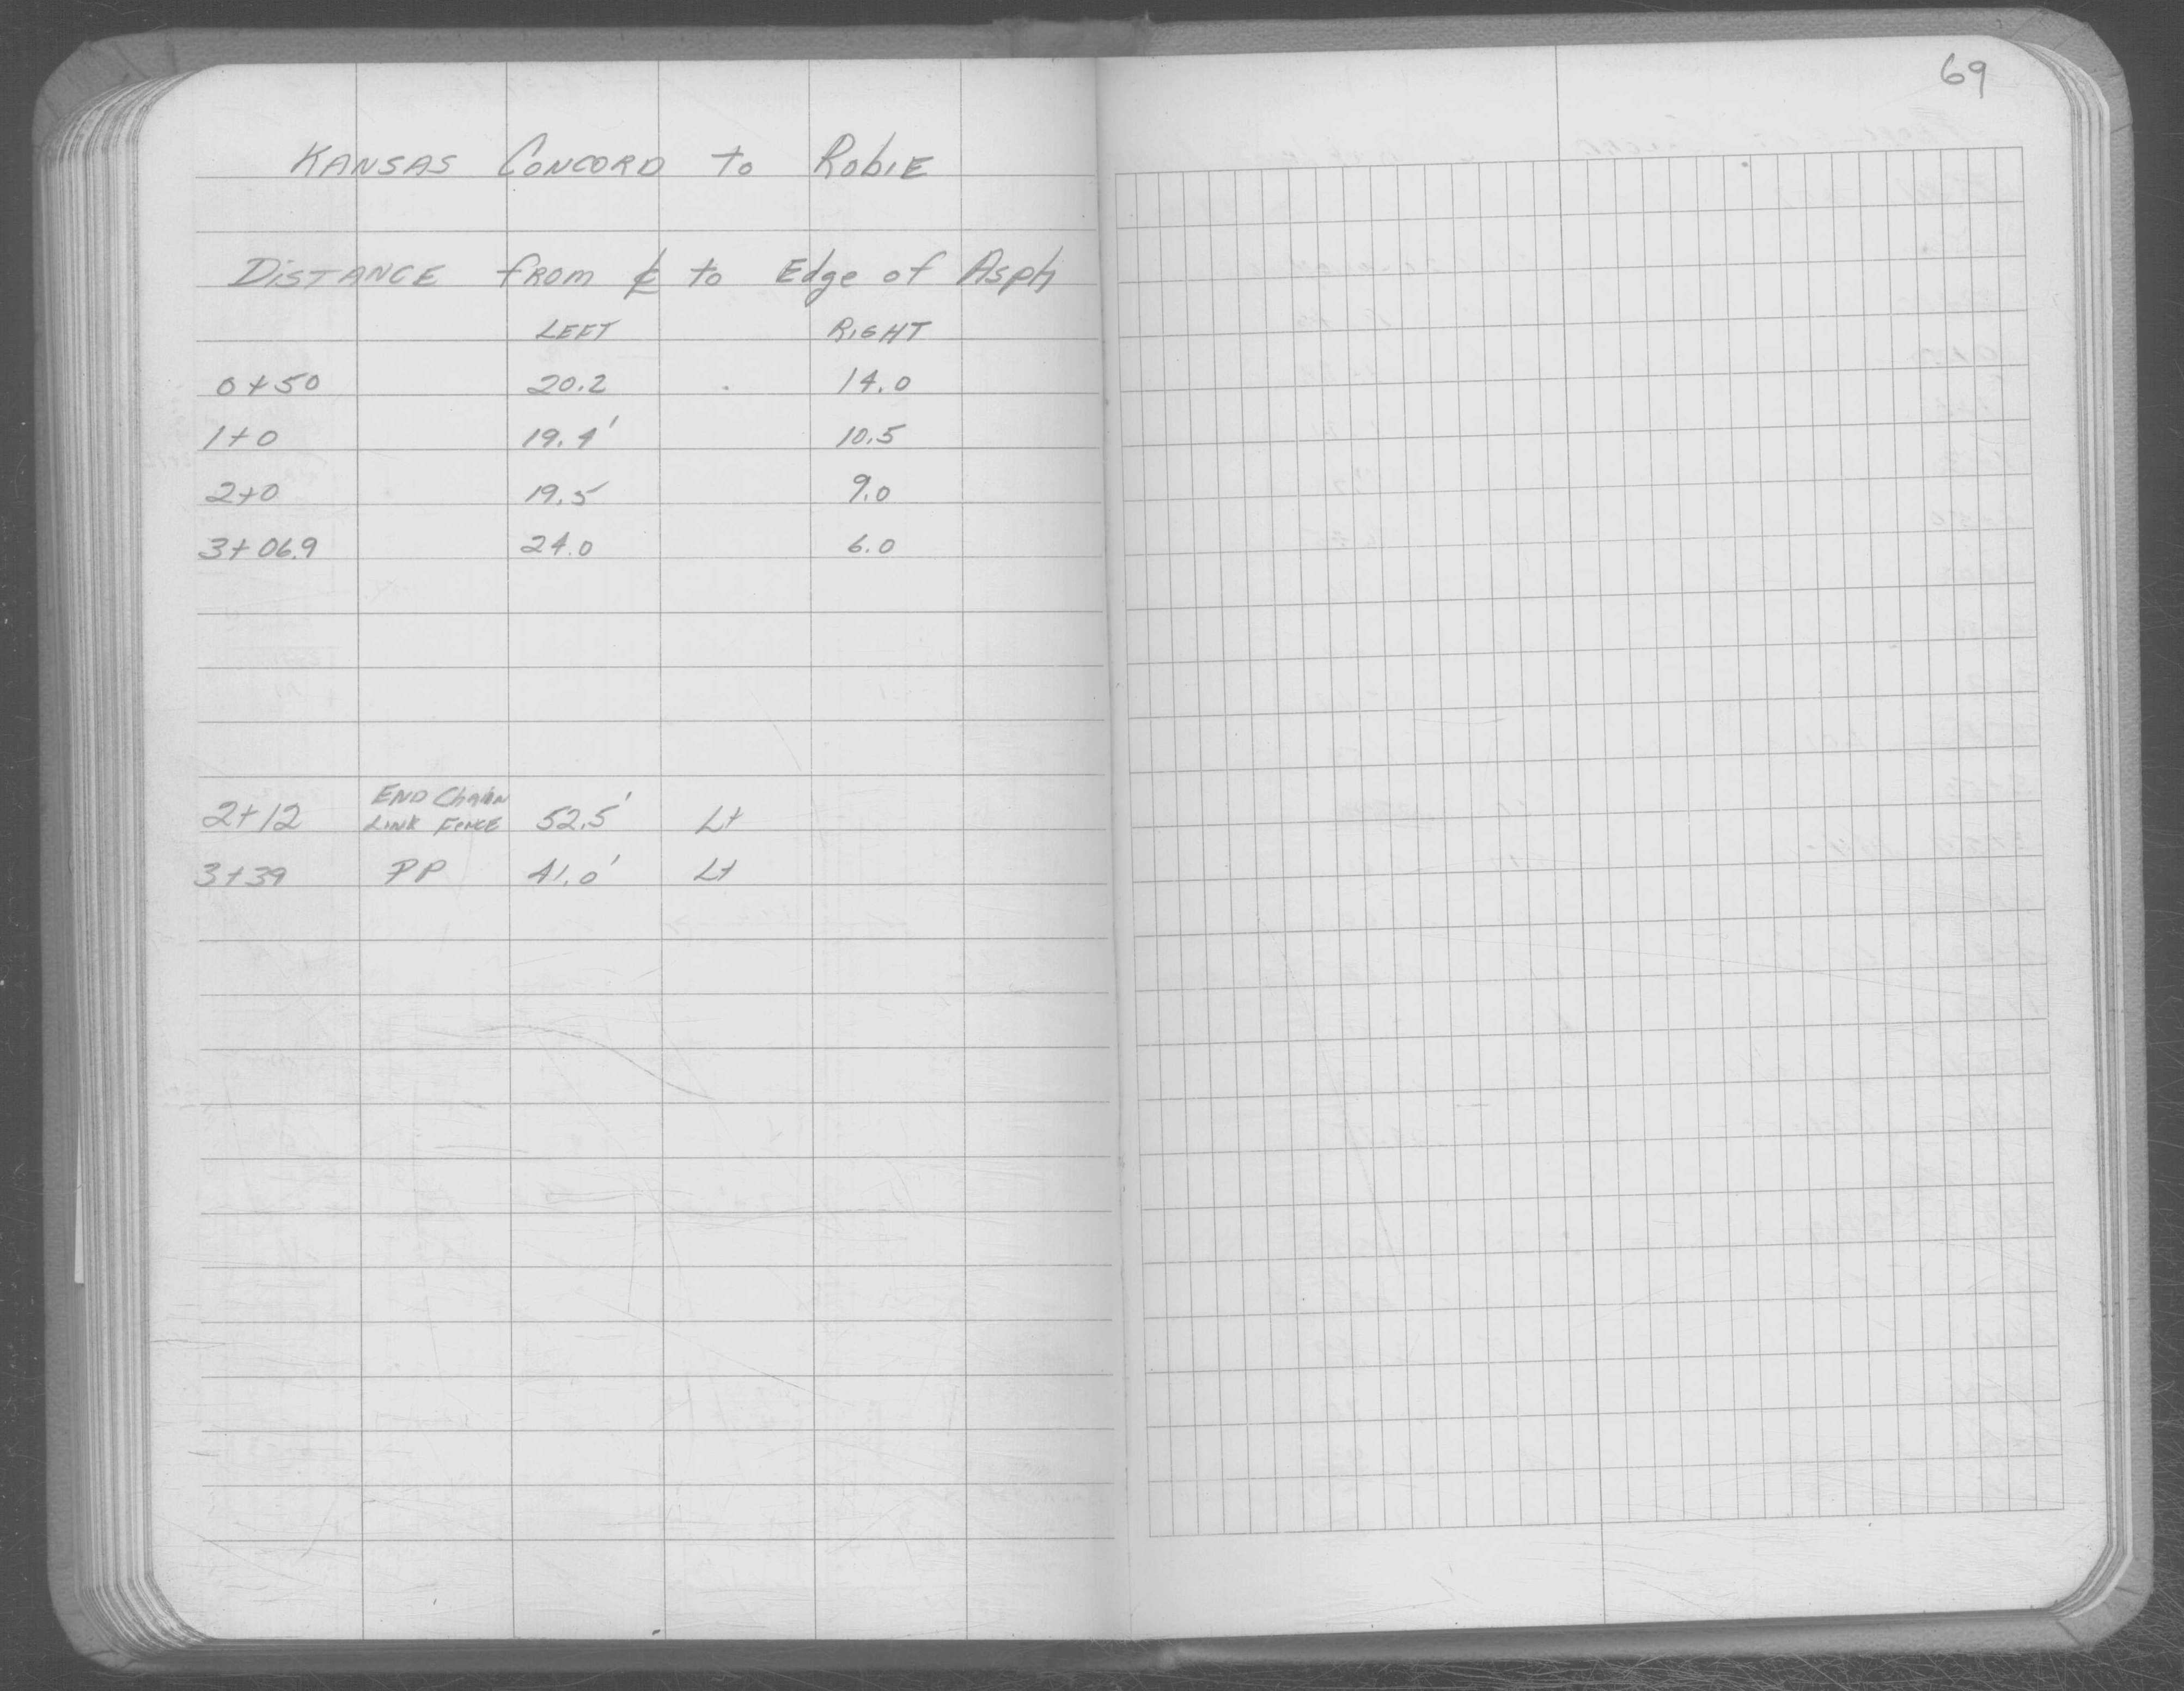 69
KANSAS CONCORD to RobiE
DiSTANCE fROM ℄ to Edge of Asph
LEFT RIGHT
0+50 20.2 14.0
1+0 19.4' 10.5
2+0 19.5 9.0
3+06.9 24.0 6.0
2+12 END Chain LINK FENCE 52.5' Lt
3+39 PP 41.0' Lt